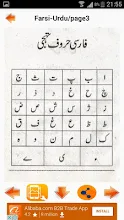 21:55
Farsi-Urdu/page3
فارسی حروف تہجی
ا ب پ ت ث ج
چ ح خ د ذ ر
ز ژ س ش ص ض
ط ظ ع غ ف ق
ک گ ل م ن و
ی ے
Alibaba.com B2B Trade App
INSTALL